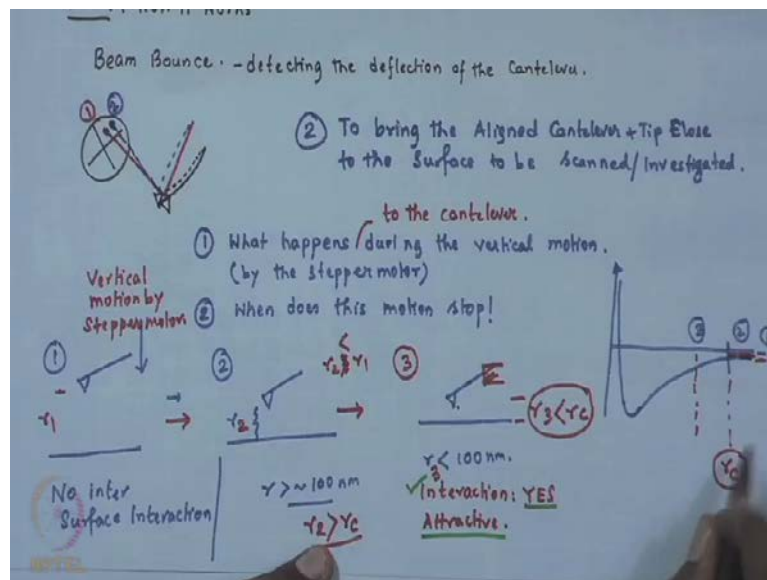 Beam Bounce. - detecting the deflection of the Cantelever.
① ②
② To bring the Aligned Cantelever + Tip Close
to the Surface to be Scanned/Investigated.
to the cantelever.
① What happens during the vertical motion.
(by the stepper motor)
Vertical
motion by
Stepper motor
② When does this motion stop!
① ② r2 < r1 ③
③ ②
r1
r2
r3 < rc
No inter
Surface Interaction
r > ~100 nm
r2 > rc
r3 < 100 nm.
✓ Interaction: YES
Attractive.
rc